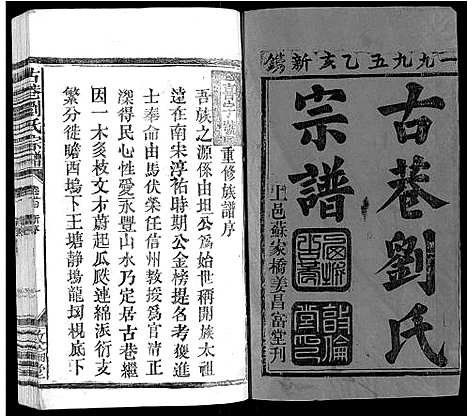 一九九五乙亥新鐫
古巷劉氏
宗譜
上邑蘇家橋姜昌富堂刊
敦倫
重修族譜序
吾族之源係由坦公為始世稱開族太祖
遠在南宋淳祐時期公金榜提名考獲進
士奉命由馬伏業任信州教授為官公正
深得民心性愛永豐山水乃定居古巷繼
因一木多枝文才蔚起瓜瓞連綿派衍支
繁分徙瞻西塢下王塘静塢龍坳梘底下
古巷劉氏宗譜